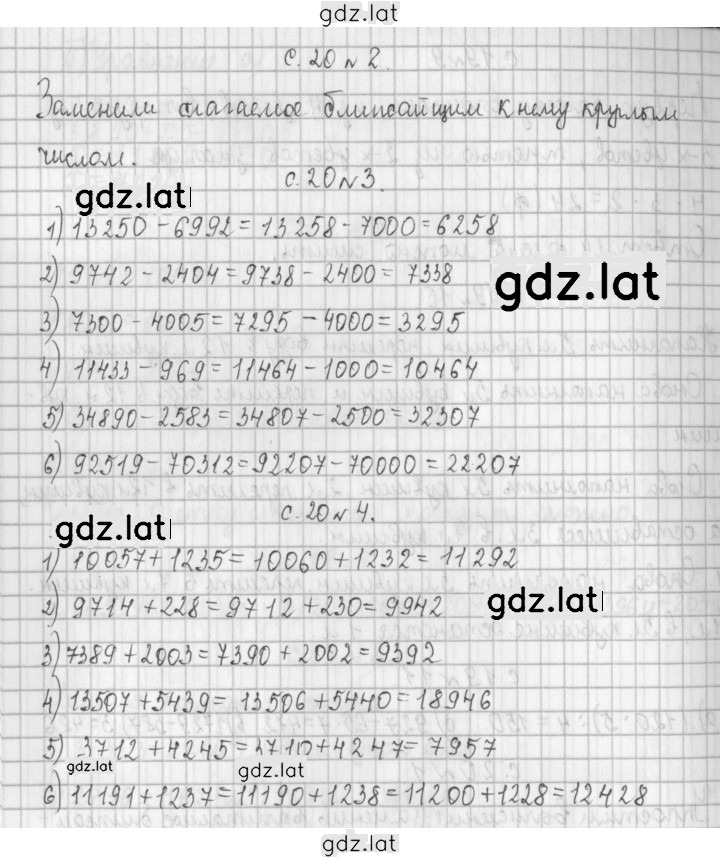 gdz.lat
с. 20 № 2.
Заменили слагаемое ближайщим к нему круглым
числом.
с. 20 № 3.
gdz.lat
1) 13250 - 6992 = 13258 - 7000 = 6258
2) 9742 - 2404 = 9738 - 2400 = 7338
gdz.lat
3) 7300 - 4005 = 7295 - 4000 = 3295
4) 11433 - 969 = 11464 - 1000 = 10464
5) 34890 - 2583 = 34807 - 2500 = 32307
6) 92519 - 70312 = 92207 - 70000 = 22207
с. 20 № 4.
gdz.lat
1) 10057 + 1235 = 10060 + 1232 = 11292
2) 9714 + 228 = 9712 + 230 = 9942
gdz.lat
3) 7389 + 2003 = 7390 + 2002 = 9392
4) 13507 + 5439 = 13506 + 5440 = 18946
5) 3712 + 4245 = 3710 + 4247 = 7957
gdz.lat
gdz.lat
6) 11191 + 1237 = 11190 + 1238 = 11200 + 1228 = 12428
gdz.lat